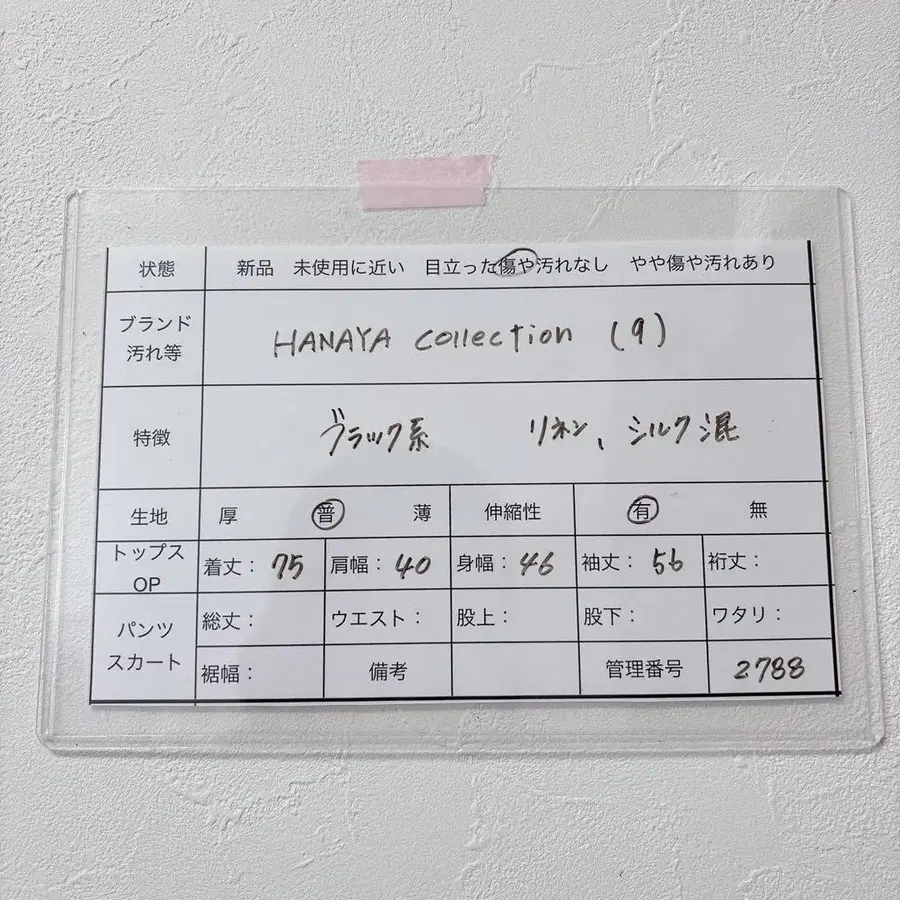 状態 新品 未使用に近い 目立った傷や汚れなし やや傷や汚れあり
ブランド
汚れ等
HANAYA collection (9)
特徴 ブラック系 リネン、シルク混
生地 厚 普 薄 伸縮性 有 無
トップス
OP
着丈: 75 肩幅: 40 身幅: 46 袖丈: 56 裄丈:
パンツ
スカート
総丈: ウエスト: 股上: 股下: ワタリ:
裾幅: 備考 管理番号 2788